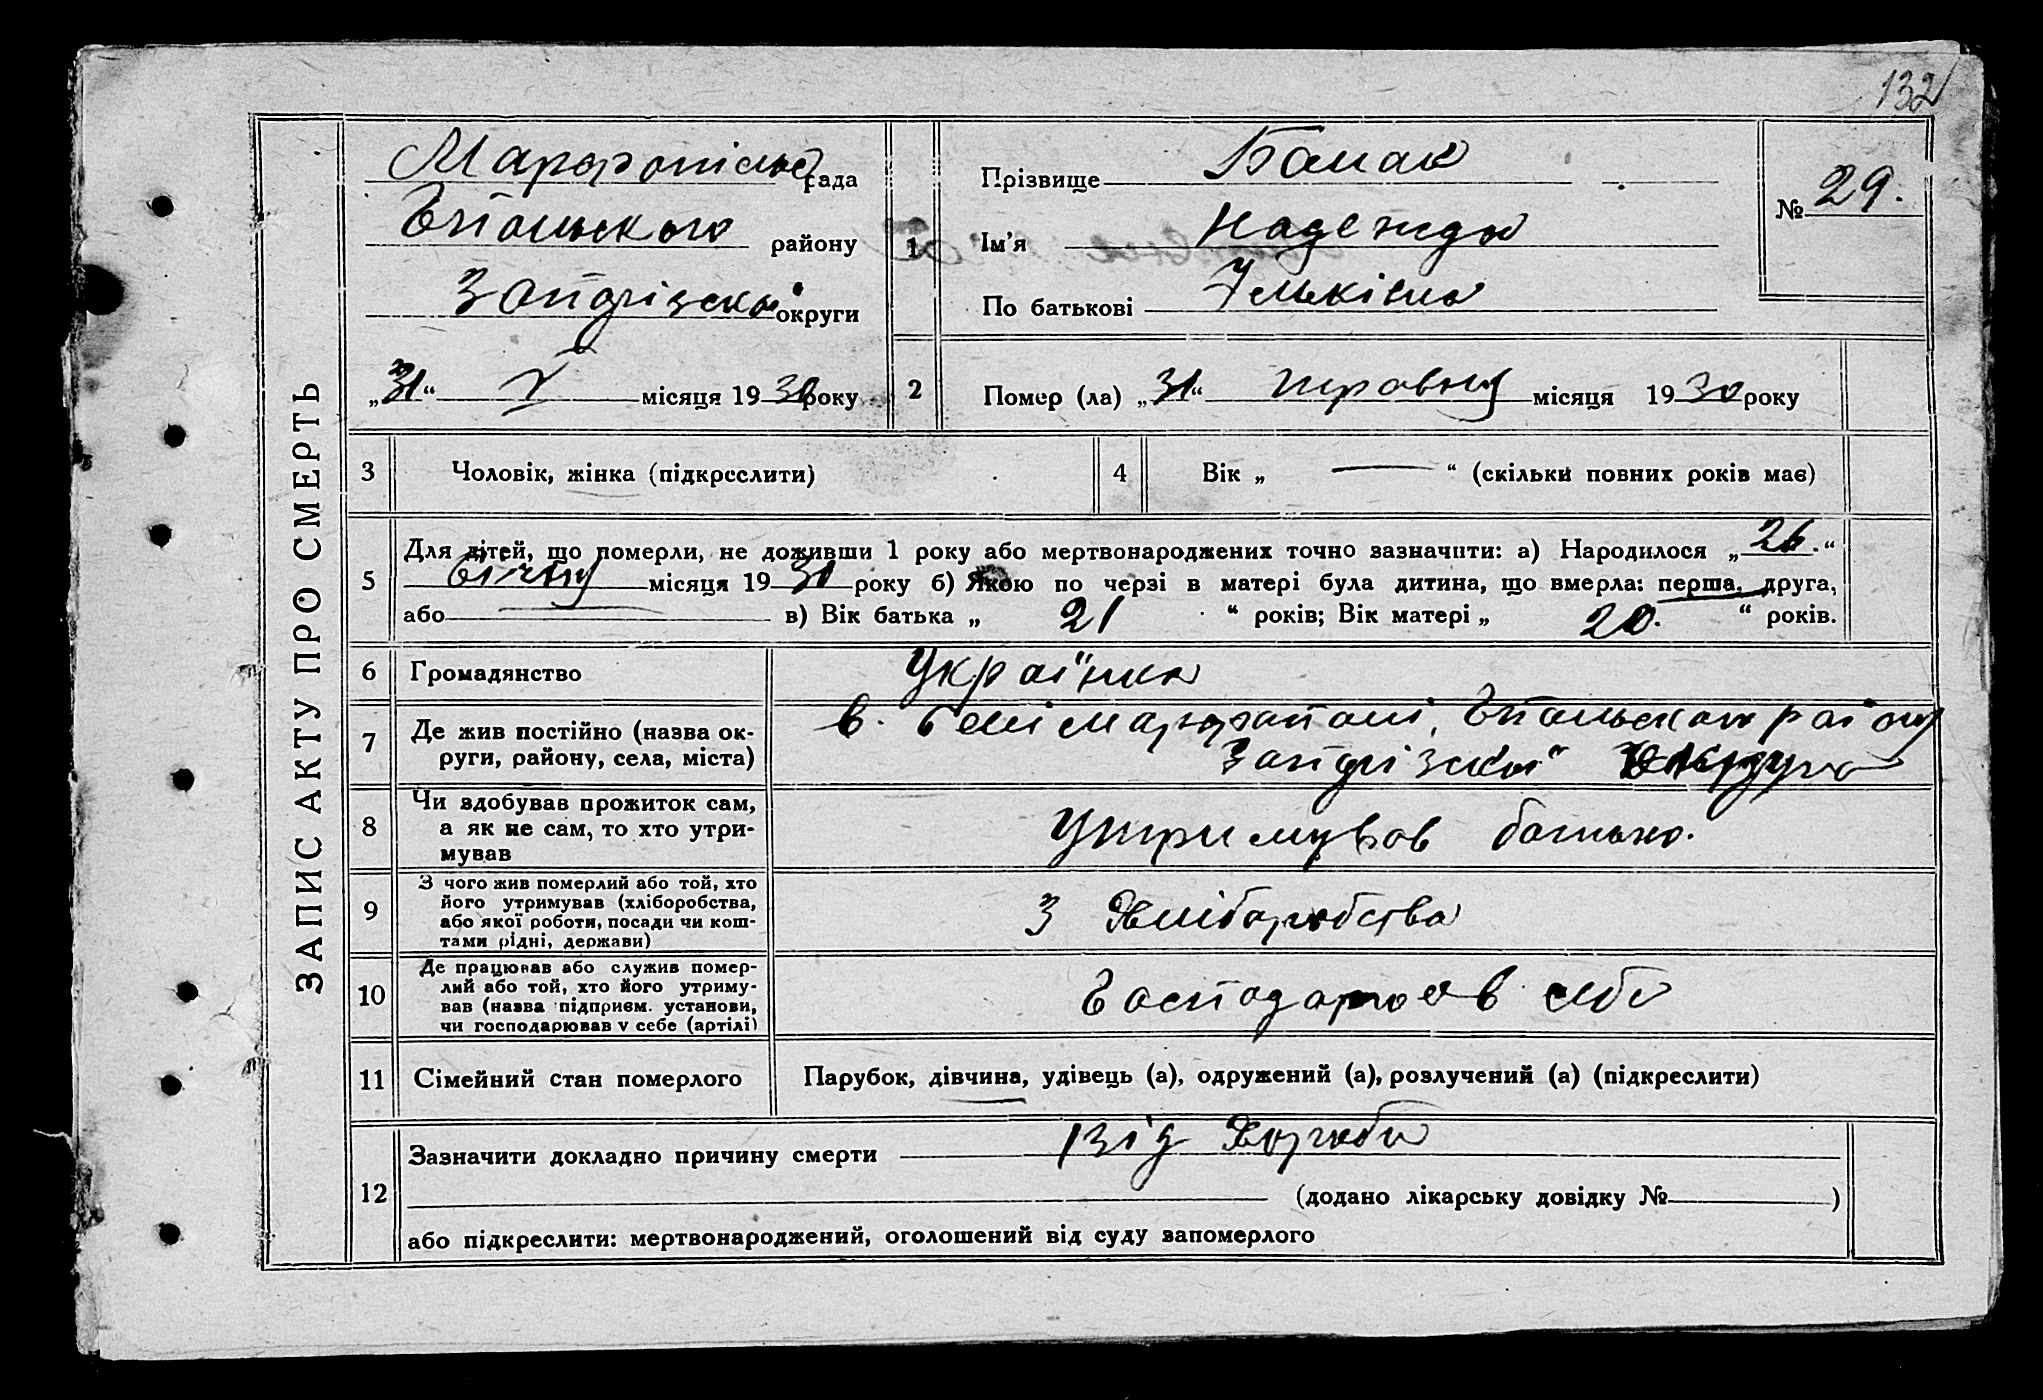 132
ЗАПИС АКТУ ПРО СМЕРТЬ
рада
району
округи
„31“ V місяця 1930 року
1
Прізвище
Ім’я Надежда
По батькові
№ 29.
2 Помер (ла) „31“ травня місяця 1930 року
3 Чоловік, жінка (підкреслити)
4 Вік „ — “ (скільки повних років має)
5 Для дітей, що померли, не доживши 1 року або мертвонароджених точно зазначити: а) Народилося „26.“
січня місяця 1930 року б) Якою по черзі в матері була дитина, що вмерла: перша, друга,
або — в) Вік батька „ 21 “ років; Вік матері „ 20. “ років.
6 Громадянство Українка
7 Де жив постійно (назва ок-
руги, району, села, міста)
в. селі району
округа
8 Чи здобував прожиток сам,
а як не сам, то хто утри-
мував
Утримував батько.
9 З чого жив померлий або той, хто
його утримував (хліборобства,
або якої роботи, посади чи кош-
тами рідні, держави)
З Хліборобства
10 Де працював або служив помер-
лий або той, хто його утриму-
вав (назва підприєм. установи,
чи господарював у себе (артілі)
11 Сімейний стан померлого Парубок, дівчина, удівець (а), одружений (а), розлучений (а) (підкреслити)
12 Зазначити докладно причину смерти Від Хороби
(додано лікарську довідку № )
або підкреслити: мертвонароджений, оголошений від суду запомерлого